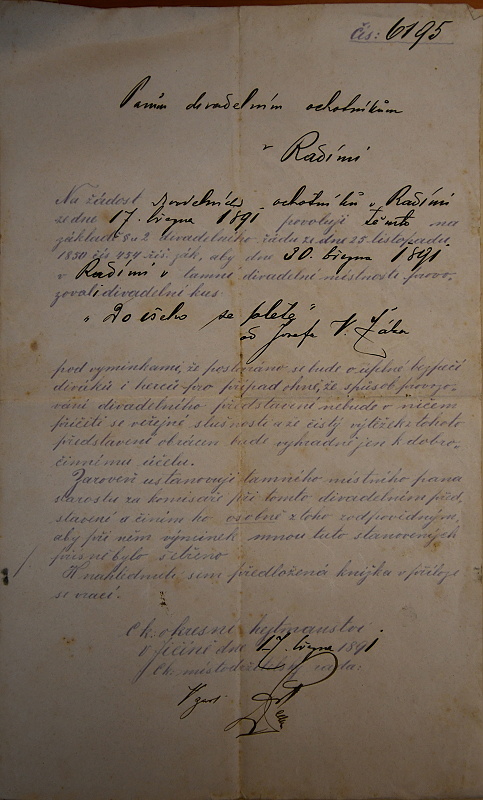 čís: 6195
Pánům divadelním ochotníkům
v Radimi
Na žádost ochotníků v Radimi
ze dne 17. března 1891 povoluji Těmto na
základě § u 2 divadelního řádu ze dne 25. listopadu
1850 čís 454 zák, aby dne 30. března 1891
v Radimi v tamní divadelní místnosti provo-
zovali divadelní kus
„ Do ešeho se plete "
od Josefa V.
pod výmínkami, že postaráno se bude o úplné bezpečí
diváků i herců pro případ ohně, že způsob provozo-
vání divadelního představení nebude v ničem
příčiti se veřejné slušnosti a že čistý výtěžek z tohoto
představení obrácen bude výhradně jen k dobro-
činnému účelu.
Zároveň ustanovuji tamního místního pana
starostu za komisaře při tomto divadelním před
stavení a činím ho osobně z toho zodpovědným,
aby při něm výmínek mnou tuto stanovených
přísně bylo šetřeno
K nahlédnutí sem předložená knížka v příloze
se vrací.
C k. okresní hejtmanství
v Jičíně dne 17. března 1891
C k. místodržitelský rada: